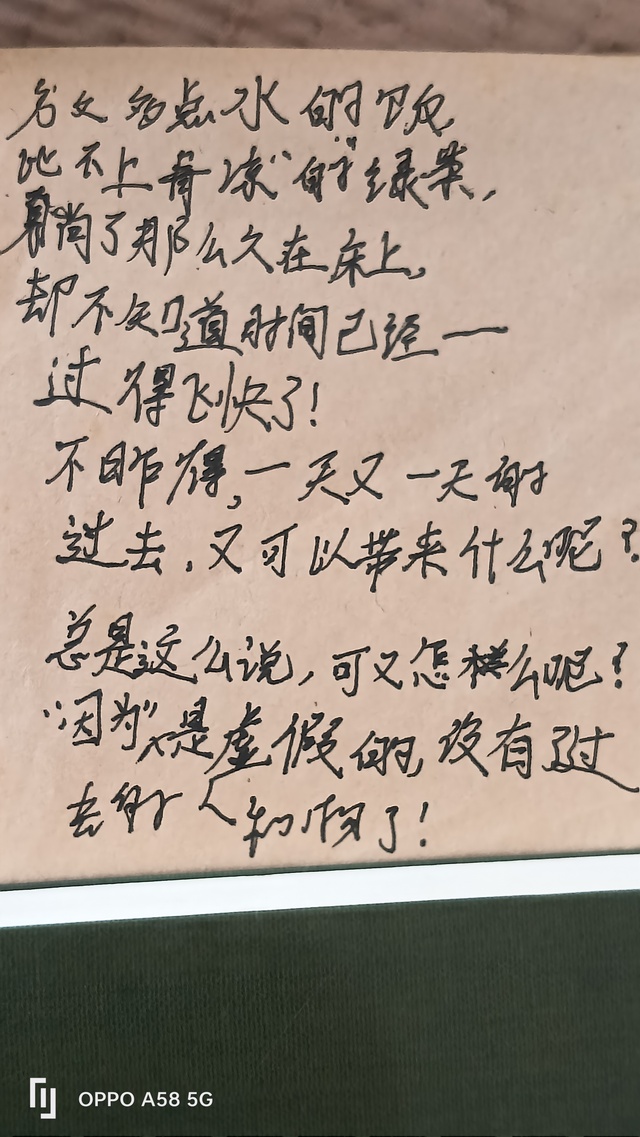 多点水的饭
比不上青凉"的绿菜,
躺了那么久在床上,
却不知道时间已经一
过得飞快了!
不晓得,一天又一天的
过去,又可以带来什么呢?
总是这么说,可又怎样么呢?
"因为"是虚假的,没有了过
去的人和物了!
OPPO A58 5G